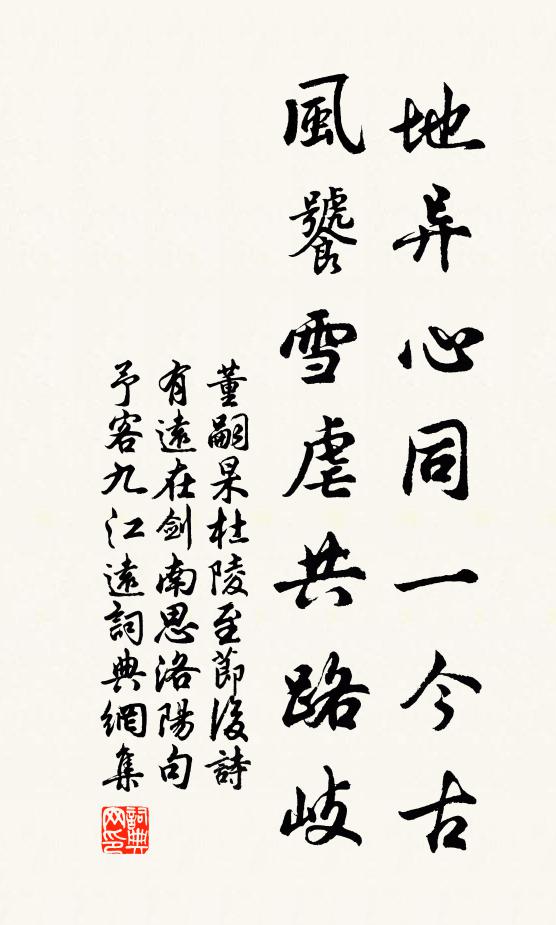 地异心同一今古
風饕雪虐共路岐
董嗣杲杜陵至節後詩
有遠在劍南思洛陽句
予客九江遠詞典網集
詞典
网印